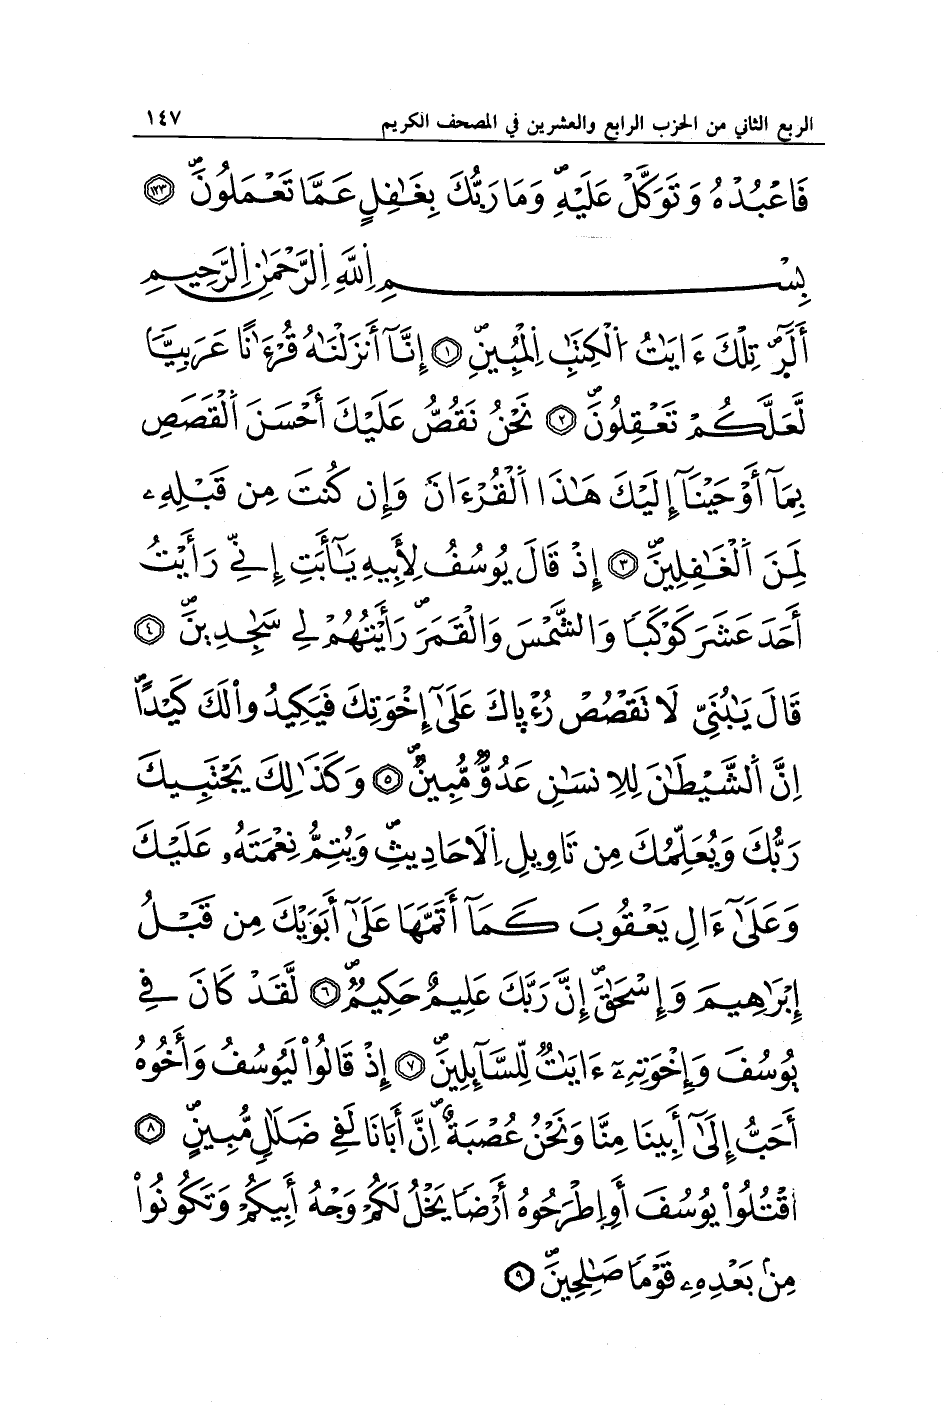 الربع الثاني من الحزب الرابع والعشرين في المصحف الكريم ١٤٧
فَاعْبُدْهُ وَتَوَكَّلْ عَلَيْهِۖ وَمَا رَبُّكَ بِغَٰفِلٍ عَمَّا تَعْمَلُونَۖ ١٢٣
بِسْمِ اِ۬للَّهِ اِ۬لرَّحْمَٰنِ اِ۬لرَّحِيمِ
أَلَٓرۖ تِلْكَ ءَايَٰتُ اُ۬لْكِتَٰبِ اِ۬لْمُبِينِۖ ١ إِنَّآ أَنزَلْنَٰهُ قُرْءَٰناً عَرَبِيّاً
لَّعَلَّكُمْ تَعْقِلُونَۖ ٢ نَحْنُ نَقُصُّ عَلَيْكَ أَحْسَنَ اَ۬لْقَصَصِ
بِمَآ أَوْحَيْنَآ إِلَيْكَ هَٰذَا اَ۬لْقُرْءَانَ وَإِن كُنتَ مِن قَبْلِهِۦ
لَمِنَ اَ۬لْغَٰفِلِينَۖ ٣ إِذْ قَالَ يُوسُفُ لِأَبِيهِ يَٰٓأَبَتِ إِنِّي رَأَيْتُ
أَحَدَ عَشَرَ كَوْكَباً وَالشَّمْسَ وَالْقَمَرَۖ رَأَيْتُهُمْ لِي سَٰجِدِينَۖ ٤
قَالَ يَٰبُنَيِّ لَا تَقْصُصْ رُءْيٰاكَ عَلَىٰٓ إِخْوَتِكَ فَيَكِيدُواْ لَكَ كَيْداًۖ
اِنَّ اَ۬لشَّيْطَٰنَ لِلِانسَٰنِ عَدُوّٞ مُّبِينٞۖ ٥ وَكَذَٰلِكَ يَجْتَبِيكَ
رَبُّكَ وَيُعَلِّمُكَ مِن تَاوِيلِ اِ۬لَاحَادِيثِۖ وَيُتِمُّ نِعْمَتَهُۥ عَلَيْكَ
وَعَلَىٰٓ ءَالِ يَعْقُوبَ كَمَآ أَتَمَّهَا عَلَىٰٓ أَبَوَيْكَ مِن قَبْلُ
إِبْرَٰهِيمَ وَإِسْحَٰقَۖ إِنَّ رَبَّكَ عَلِيمٌ حَكِيمٞۖ ٦ لَّقَدْ كَانَ فِي
يُوسُفَ وَإِخْوَتِهِۦٓ ءَايَٰتٞ لِّلسَّآئِلِينَۖ ٧ إِذْ قَالُواْ لَيُوسُفُ وَأَخُوهُ
أَحَبُّ إِلَىٰٓ أَبِينَا مِنَّا وَنَحْنُ عُصْبَةٌۖ اِنَّ أَبَانَا لَفِي ضَلَٰلٍ مُّبِينٍۖ ٨
اِ۟قْتُلُواْ يُوسُفَ أَوِ اِ۪طْرَحُوهُ أَرْضاً يَخْلُ لَكُمْ وَجْهُ أَبِيكُمْ وَتَكُونُواْ
مِنۢ بَعْدِهِۦ قَوْماً صَٰلِحِينَۖ ٩